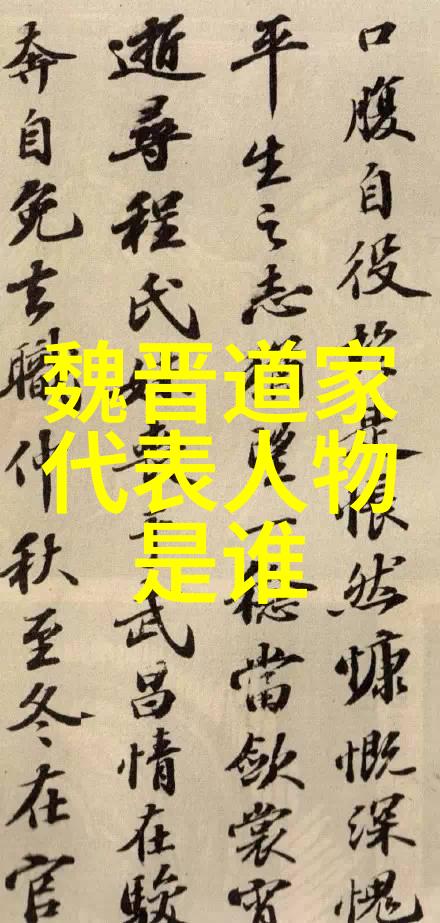 口腹自役於是悵然慷慨深愧
平生之志猶望一稔當斂裳宵
逝尋程氏妹喪于武昌情在駿
奔自免去職仲秋至冬在官
魏晋道家
代表人物
是谁